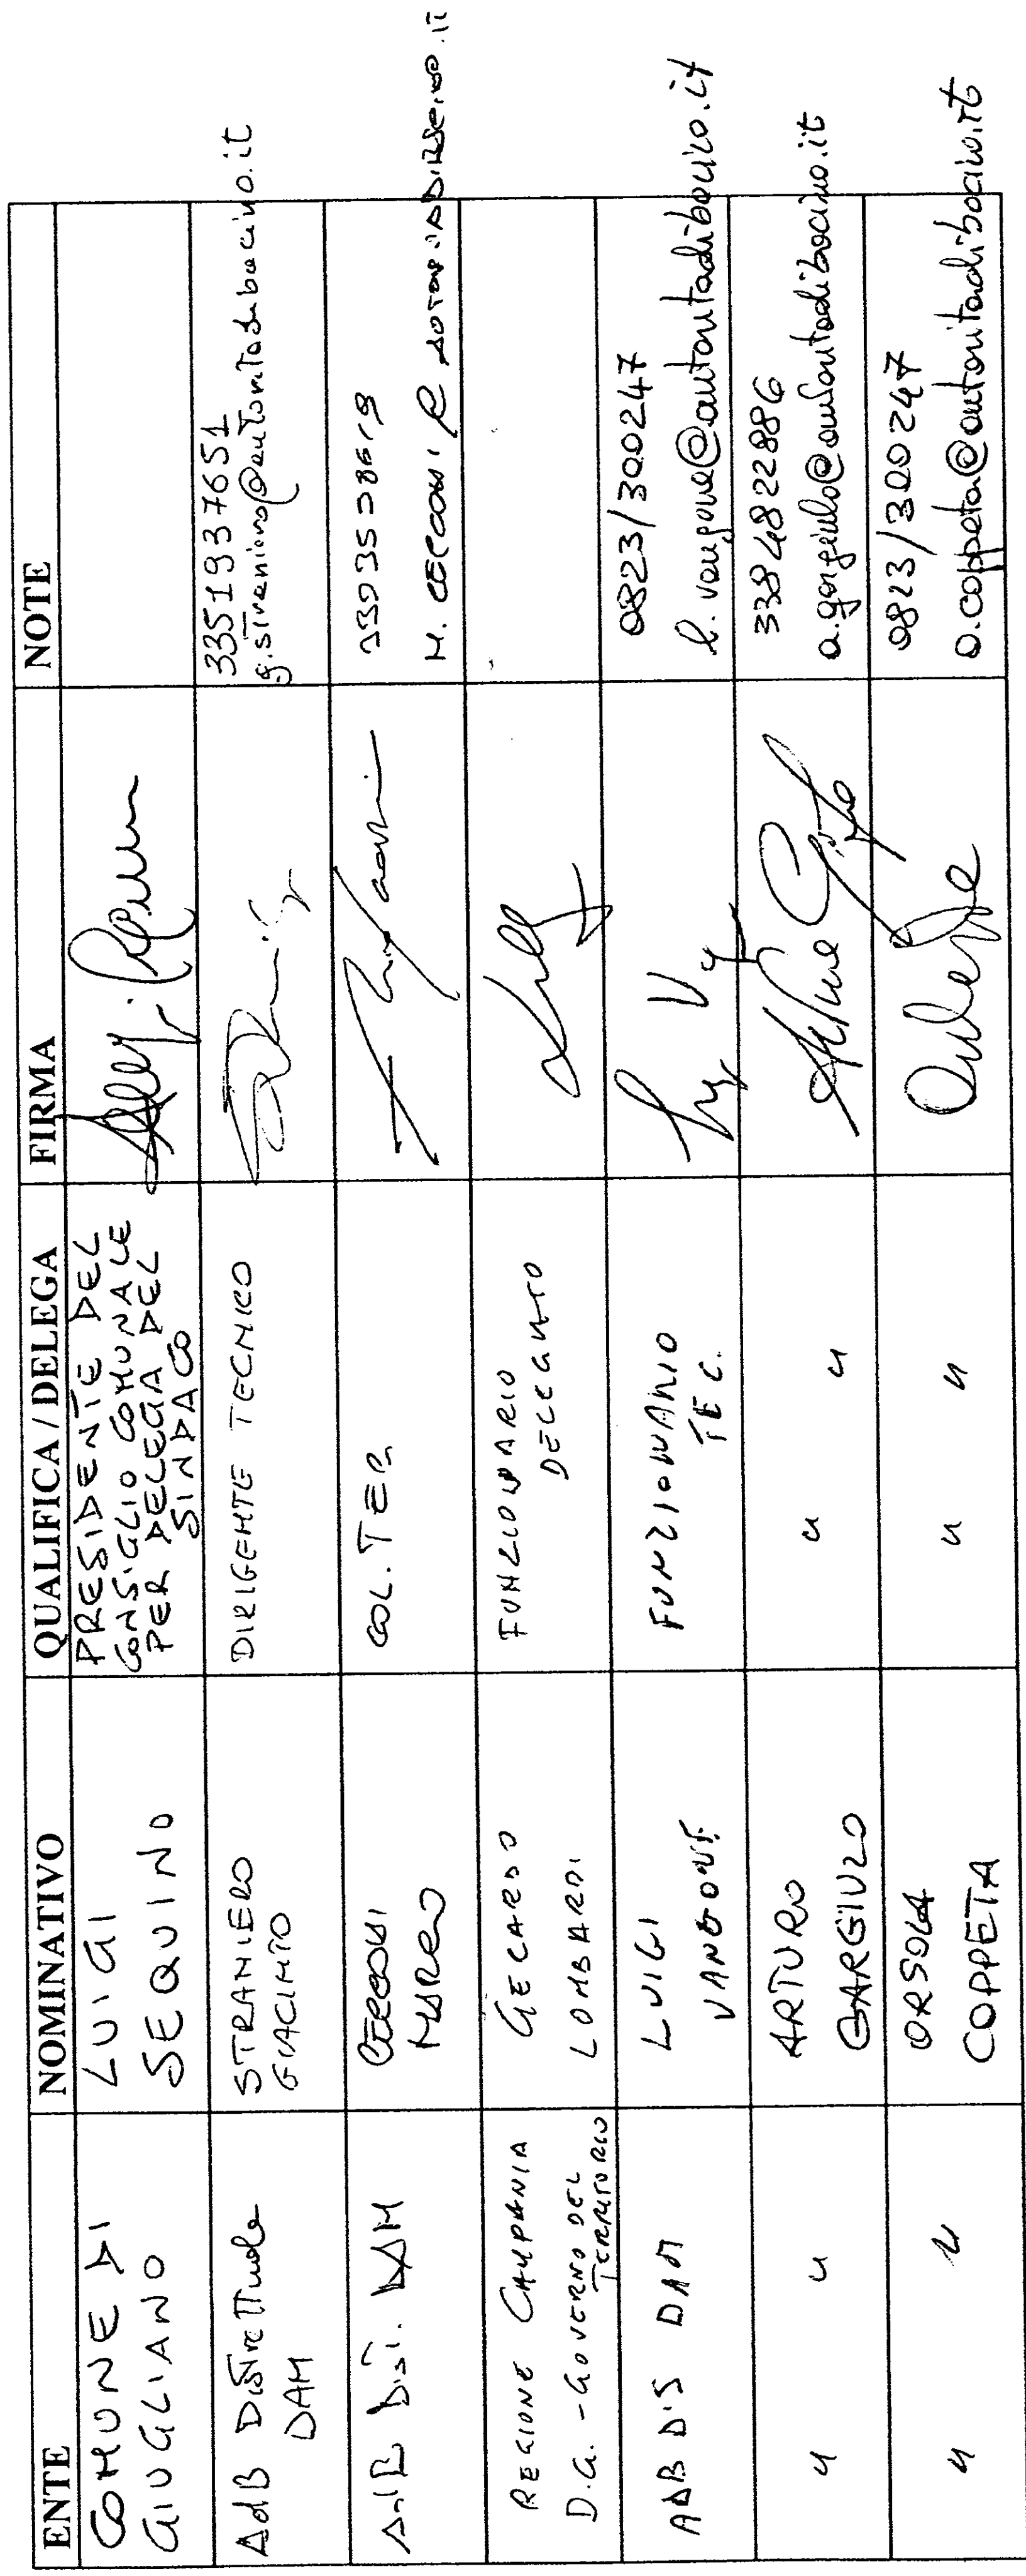 ENTE NOMINATIVO QUALIFICA / DELEGA FIRMA NOTE
COMUNE DI
GIUGLIANO
LUIGI
SEQUINO
PRESIDENTE DEL
CONSIGLIO COMUNALE
PER DELEGA DEL
SINDACO
AdB Distrettuale
DAM
STRANIERO
GIACINTO
DIRIGENTE TECNICO
3351937651
AdB Dist. DAM
MARCO
COL. TER
REGIONE CAMPANIA
D.G. - GOVERNO DEL
TERRITORIO
GERARDO
LOMBARDI
FUNZIONARIO
DELEGATO
ADB DIS DAM
LUIGI
VANGONE
FUNZIONARIO
TEC.
0823/300247
l.vangone@autoritadibacino.it
" "
ARTURO
GARGIULO
" "
Arturo
3384822886
a.gargiulo@autoritadibacino.it
" "
ORSOLA
COPPETA
" "
0823/300247
o.coppeta@autoritadibacino.it